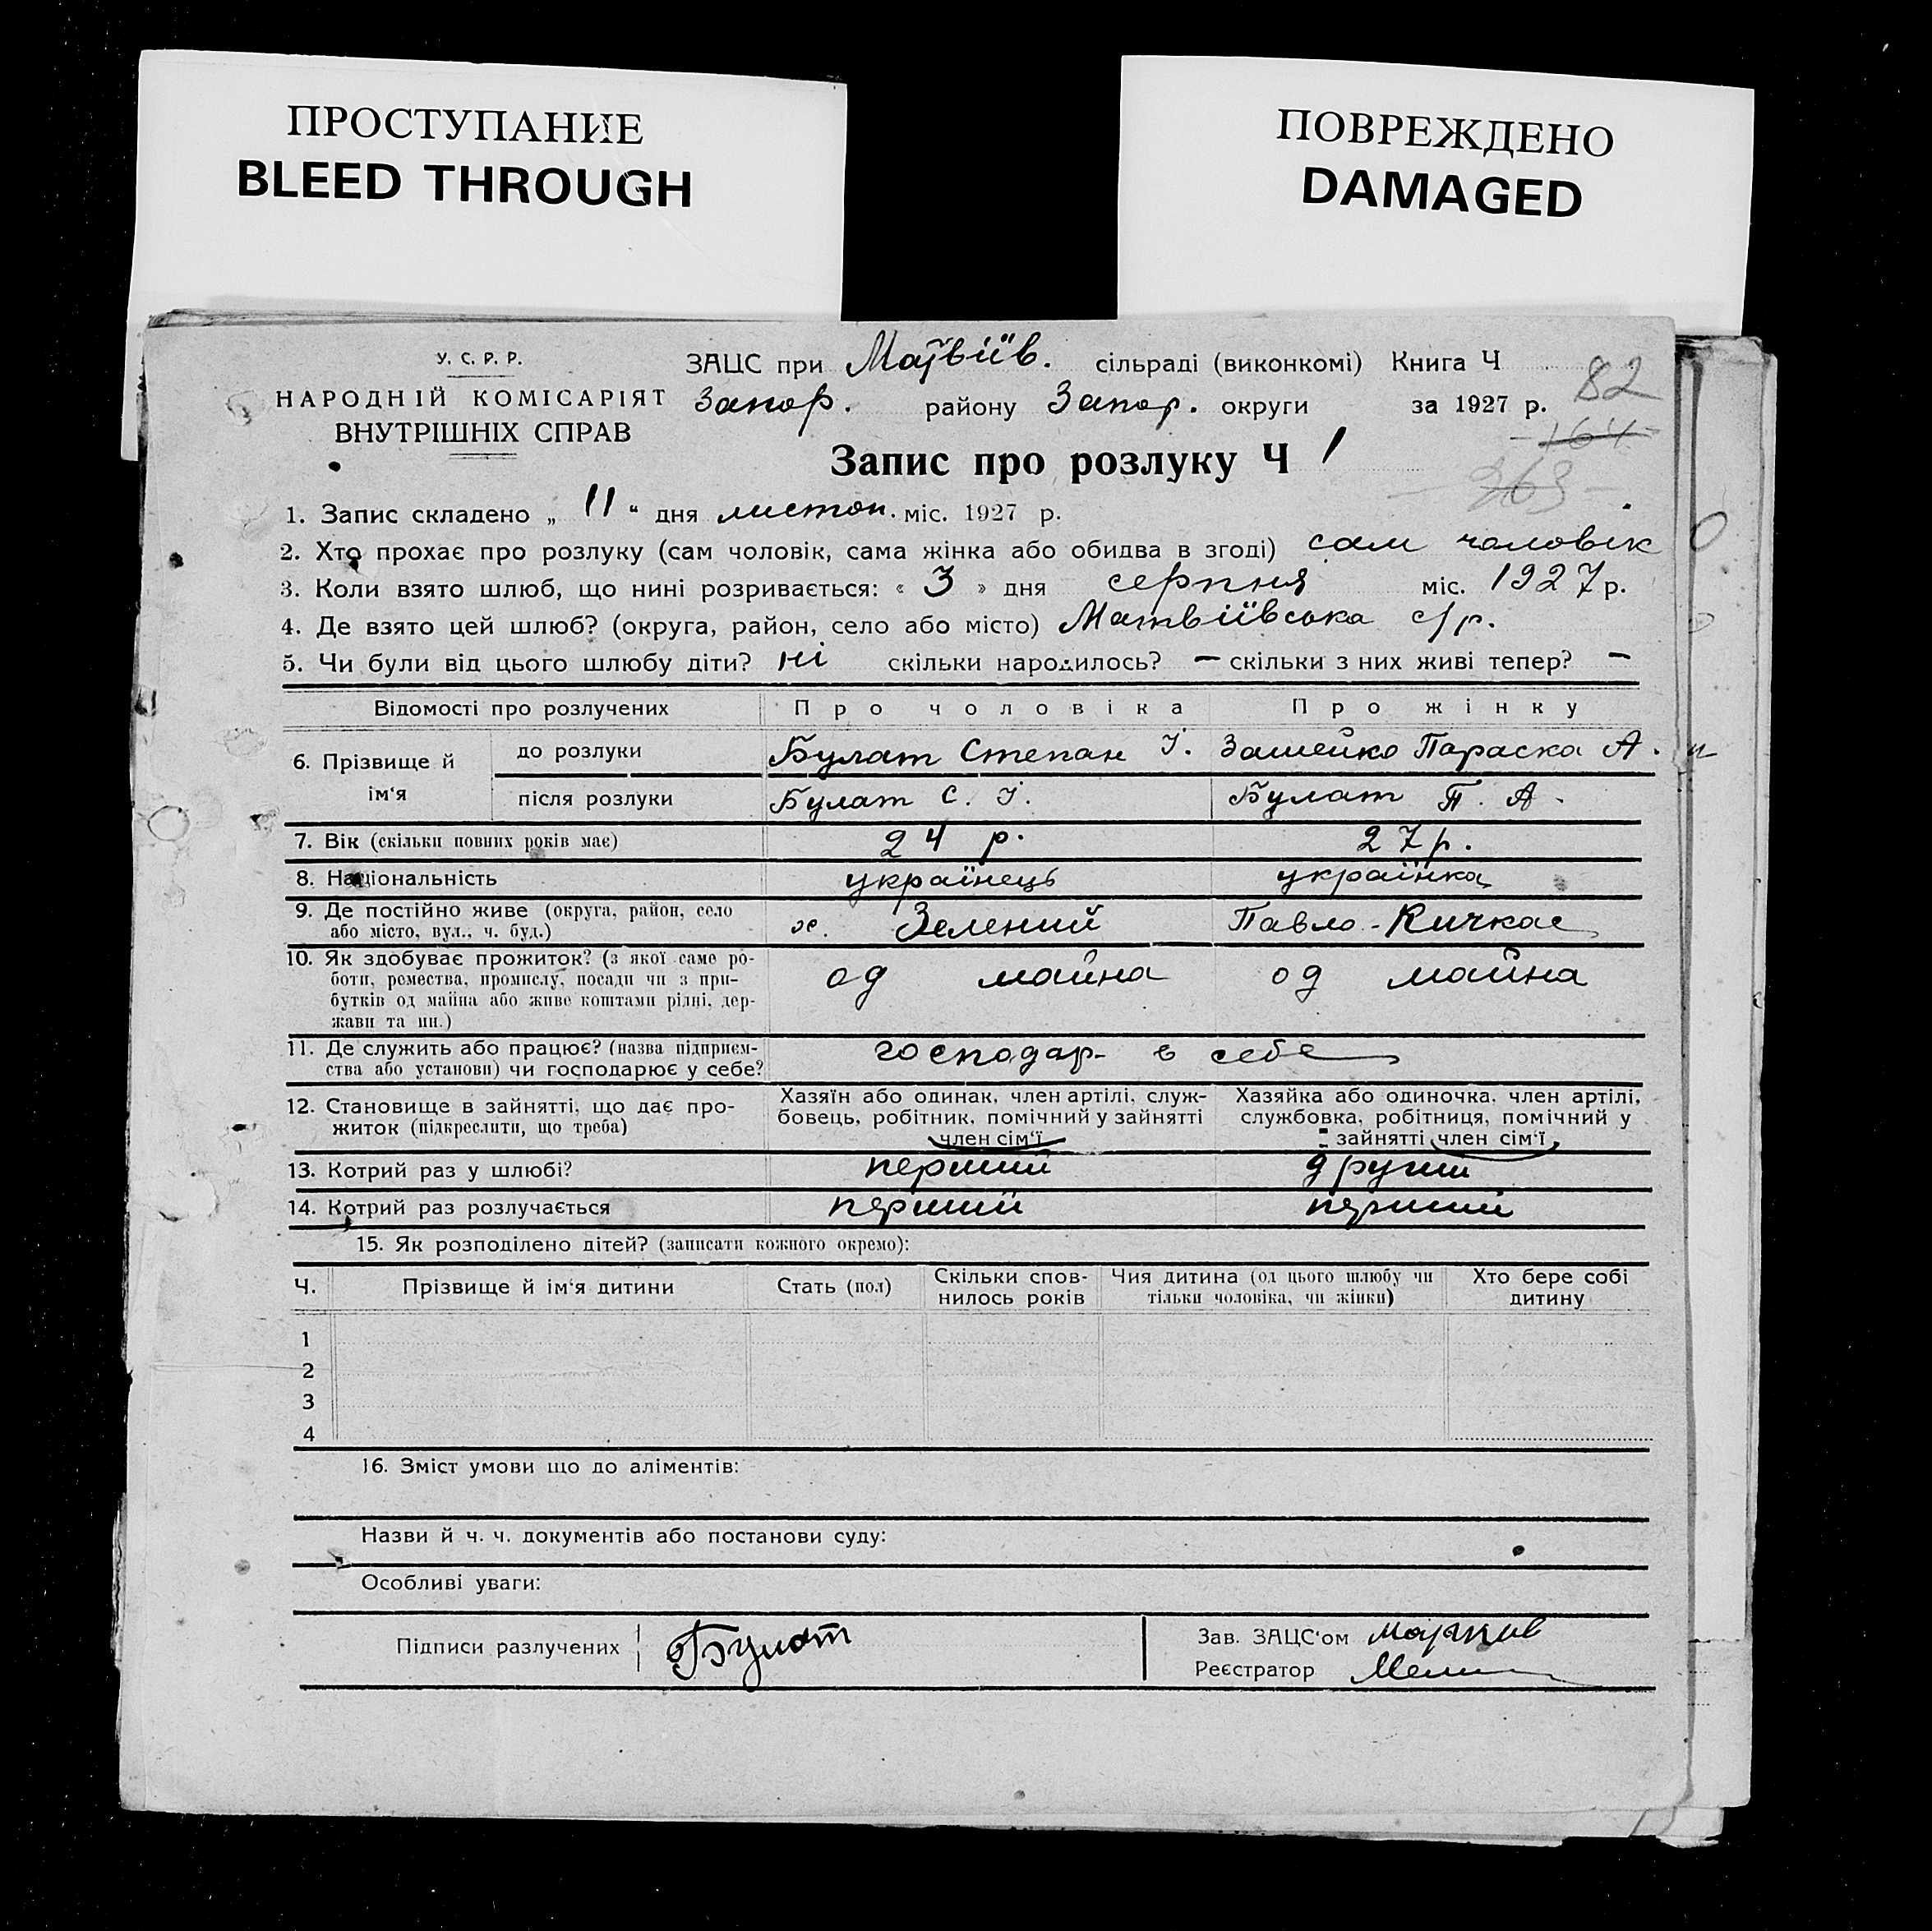 ПРОСТУПАНИЕ
BLEED THROUGH
ПОВРЕЖДЕНО
DAMAGED
У. С. Р. Р.
НАРОДНІЙ КОМІСАРІЯТ
ВНУТРІШНІХ СПРАВ
ЗАЦС при Матвіїв. сільраді (виконкомі) Книга Ч
82
Запор. району Запор. округи за 1927 р.
164
263
Запис про розлуку Ч 1
1. Запис складено „ 11 “ дня листоп. міс. 1927 р.
2. Хто прохає про розлуку (сам чоловік, сама жінка або обидва в згоді) сам чоловік
3. Коли взято шлюб, що нині розривається: « 3 » дня серпня міс. 1927 р.
4. Де взято цей шлюб? (округа, район, село або місто) Матвіївська с/р.
5. Чи були від цього шлюбу діти? ні скільки народилось? — скільки з них живі тепер? —
Відомості про розлучених Про чоловіка Про жінку
6. Прізвище й ім‘я
до розлуки Булат Степан І. Зашейко Параска А.
після розлуки Булат С. І. Булат П. А.
7. Вік (скільки повних років має) 24 р. 27 р.
8. Національність українець українка
9. Де постійно живе (округа, район, село
або місто, вул., ч. буд.) х. Зелений Павло-Кичкас
10. Як здобуває прожиток? (з якої саме ро-
боти, ремества, промислу, посади чи з при-
бутків од майна або живе коштами рідні, дер-
жави та ин.) од майна од майна
11. Де служить або працює? (назва підприєм-
ства або установи) чи господарює у себе? господар- в себе
12. Становище в зайнятті, що дає про-
житок (підкреслити, що треба)
Хазяїн або одинак, член артілі, служ-
бовець, робітник, помічний у зайнятті
член сім‘ї
Хазяйка або одиночка, член артілі,
службовка, робітниця, помічний у
зайнятті член сім‘ї
13. Котрий раз у шлюбі? перший другий
14. Котрий раз розлучається перший перший
15. Як розподілено дітей? (записати кожного окремо):
Ч. Прізвище й ім‘я дитини Стать (пол) Скільки спов-
нилось років Чия дитина (од цього шлюбу чи
тільки чоловіка, чи жінки) Хто бере собі
дитину
1
2
3
4
16. Зміст умови що до аліментів:
Назви й ч. ч. документів або постанови суду:
Особливі уваги:
Підписи разлучених Булат
Зав. ЗАЦС‘ом
Реєстратор